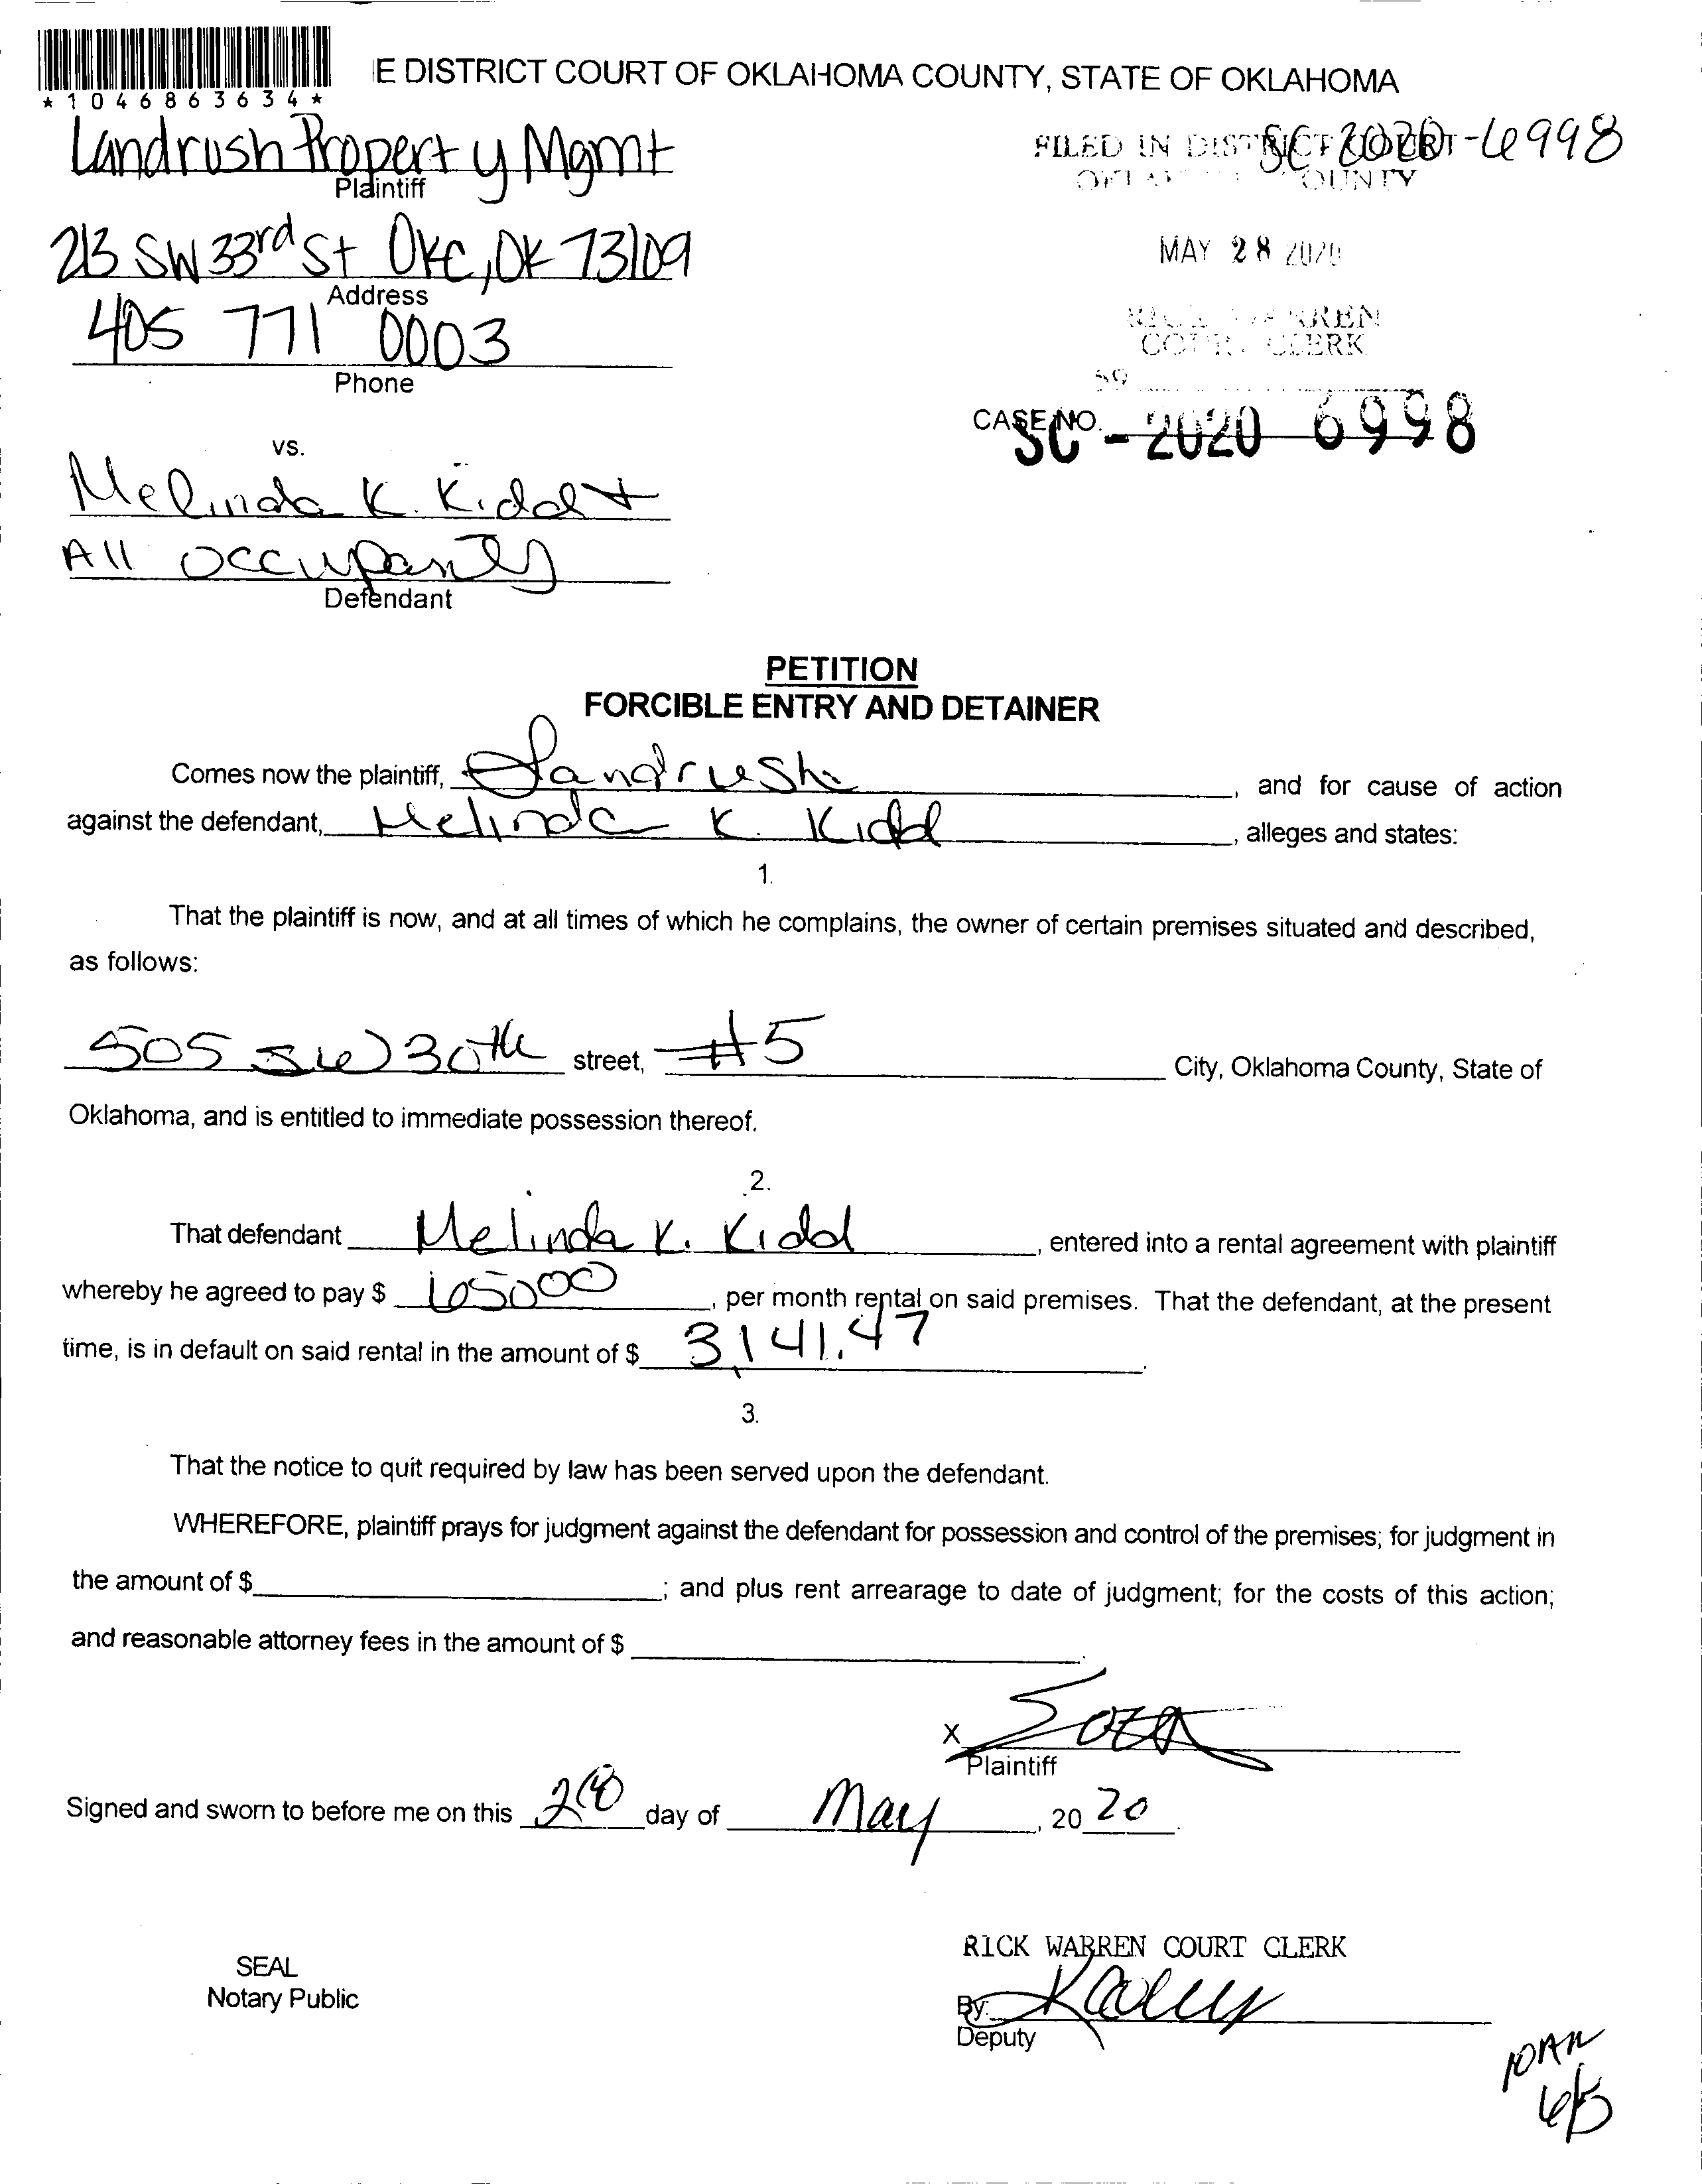 *1046863634*
E DISTRICT COURT OF OKLAHOMA COUNTY, STATE OF OKLAHOMA
Landrush Property Mgmt
Plaintiff
SC 2020-6998
FILED IN DISTRICT COURT
OKLAHOMA COUNTY
213 SW 33rd St OKC, OK 73109
Address
MAY 28 2020
405 771 0003
Phone
RICK WARREN
COURT CLERK
CASE NO.
SC - 2020 6998
vs.
Melinda K. Kidd +
All Occupants
Defendant
PETITION
FORCIBLE ENTRY AND DETAINER
Comes now the plaintiff, Landrush, and for cause of action
against the defendant, Melinda K. Kidd, alleges and states:
1.
That the plaintiff is now, and at all times of which he complains, the owner of certain premises situated and described,
as follows:
505 SW 30th street, #5 City, Oklahoma County, State of
Oklahoma, and is entitled to immediate possession thereof.
2.
That defendant Melinda K. Kidd, entered into a rental agreement with plaintiff
whereby he agreed to pay $ 650 00, per month rental on said premises. That the defendant, at the present
time, is in default on said rental in the amount of $ 3,141.47.
3.
That the notice to quit required by law has been served upon the defendant.
WHEREFORE, plaintiff prays for judgment against the defendant for possession and control of the premises; for judgment in
the amount of $ ; and plus rent arrearage to date of judgment; for the costs of this action;
and reasonable attorney fees in the amount of $ .
X
Plaintiff
Signed and sworn to before me on this 28 day of May, 20 20.
RICK WARREN COURT CLERK
SEAL
Notary Public
By:
Deputy
10AM